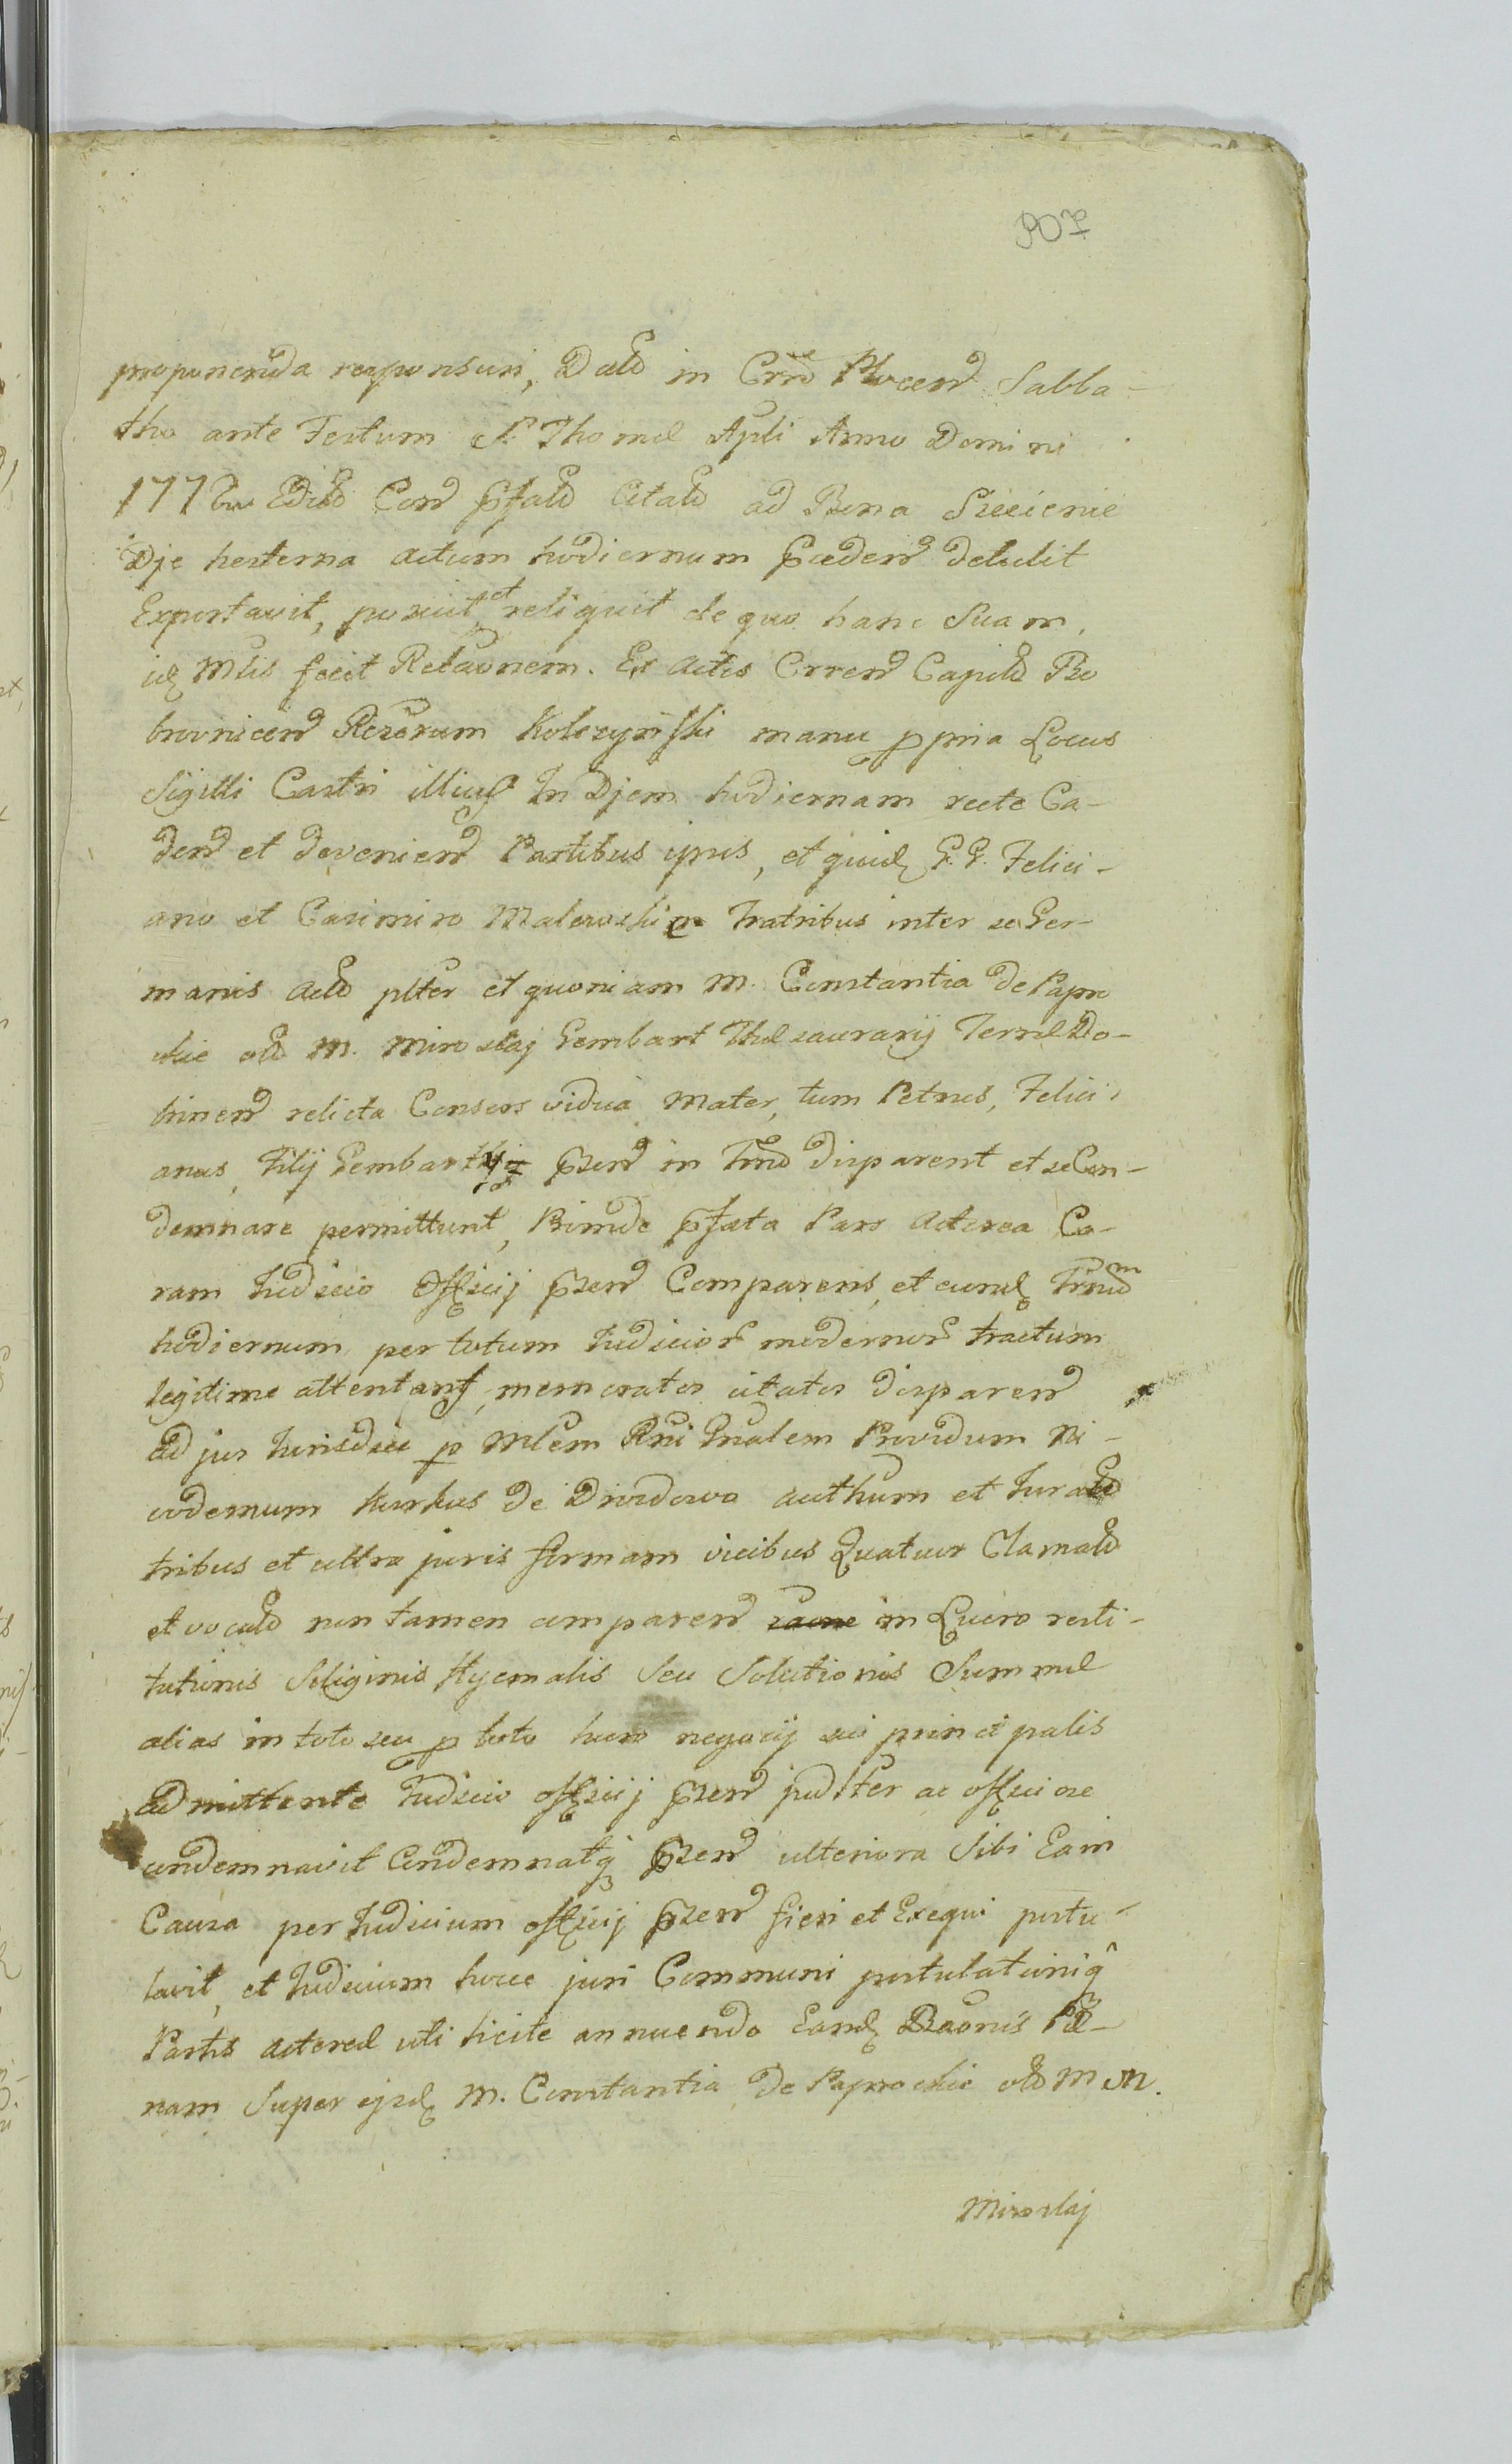 proponenda responsuri, Datd in Crrd Plocend Sabba-
tho ante Festum S. Thomæ Apli Anno Domini
177 Edid Cond pfatd Citatd ad Bona Szczicnie
Dje hesterna actum hodiernum pcedend detulit
Exportavit, posuit et reliquit de quo hanc Suam,
idz Mlis fecit Relaonem. Ex Actis Crrend Capitd Bo
browniccend Rczerum Kolczyński manu ppria Locus
Sigilli Castri illius In Djem hodiernam recte Ca-
dend et deveniend Partibus ipsis, et quidz G. G. Felici-
ano et Casimiro Malewski Fratribus inter se Ger-
manis Actd plter et quoniam M. Constantia de Papro
ckie old M. Miroslaj Gembart Thesaurarij Terræ Do-
brinend relicta Consors vidua Mater, tum Petrus, Felici,
anus, Filij Gembart pzend in Trno disparent et se Con-
demnare permittunt, Proinde pfata Pars Actorea Co-
ram Judicio Officij pzend Comparens, et eundz Trnum
hodiernum per totum Judicior modernor tractum
legitime attentans, memoratos citatos disparend
ad jus Jurisdice p Mlem Rni Gnalem Providum Ni-
codemum Kurkus de Drozdowo authum et Juratd
tribus et ultra juris formam vicibus Quatuor Clamatd
et vocatd non tamen comparend in Lucro resti-
tutionis Siliginis Hyemalis Seu Solutionis Summæ
alias in toto seu p toto lucro negocij sui principalis
admittente Judicio officij pzend judlter ac officiose
condemnavit Condemnatq pzend ulteriora Sibi Eam
Causa per Judicium officij pzend fieri et Exequi postu-
lavit, et Judicium hocce juri Communi postulationiq
Partis actoreæ uti licite annuendo Eandz Baonis Pæ-
nam Super ejsdz M. Constantia de Paprockie old M M.
Miroslaj